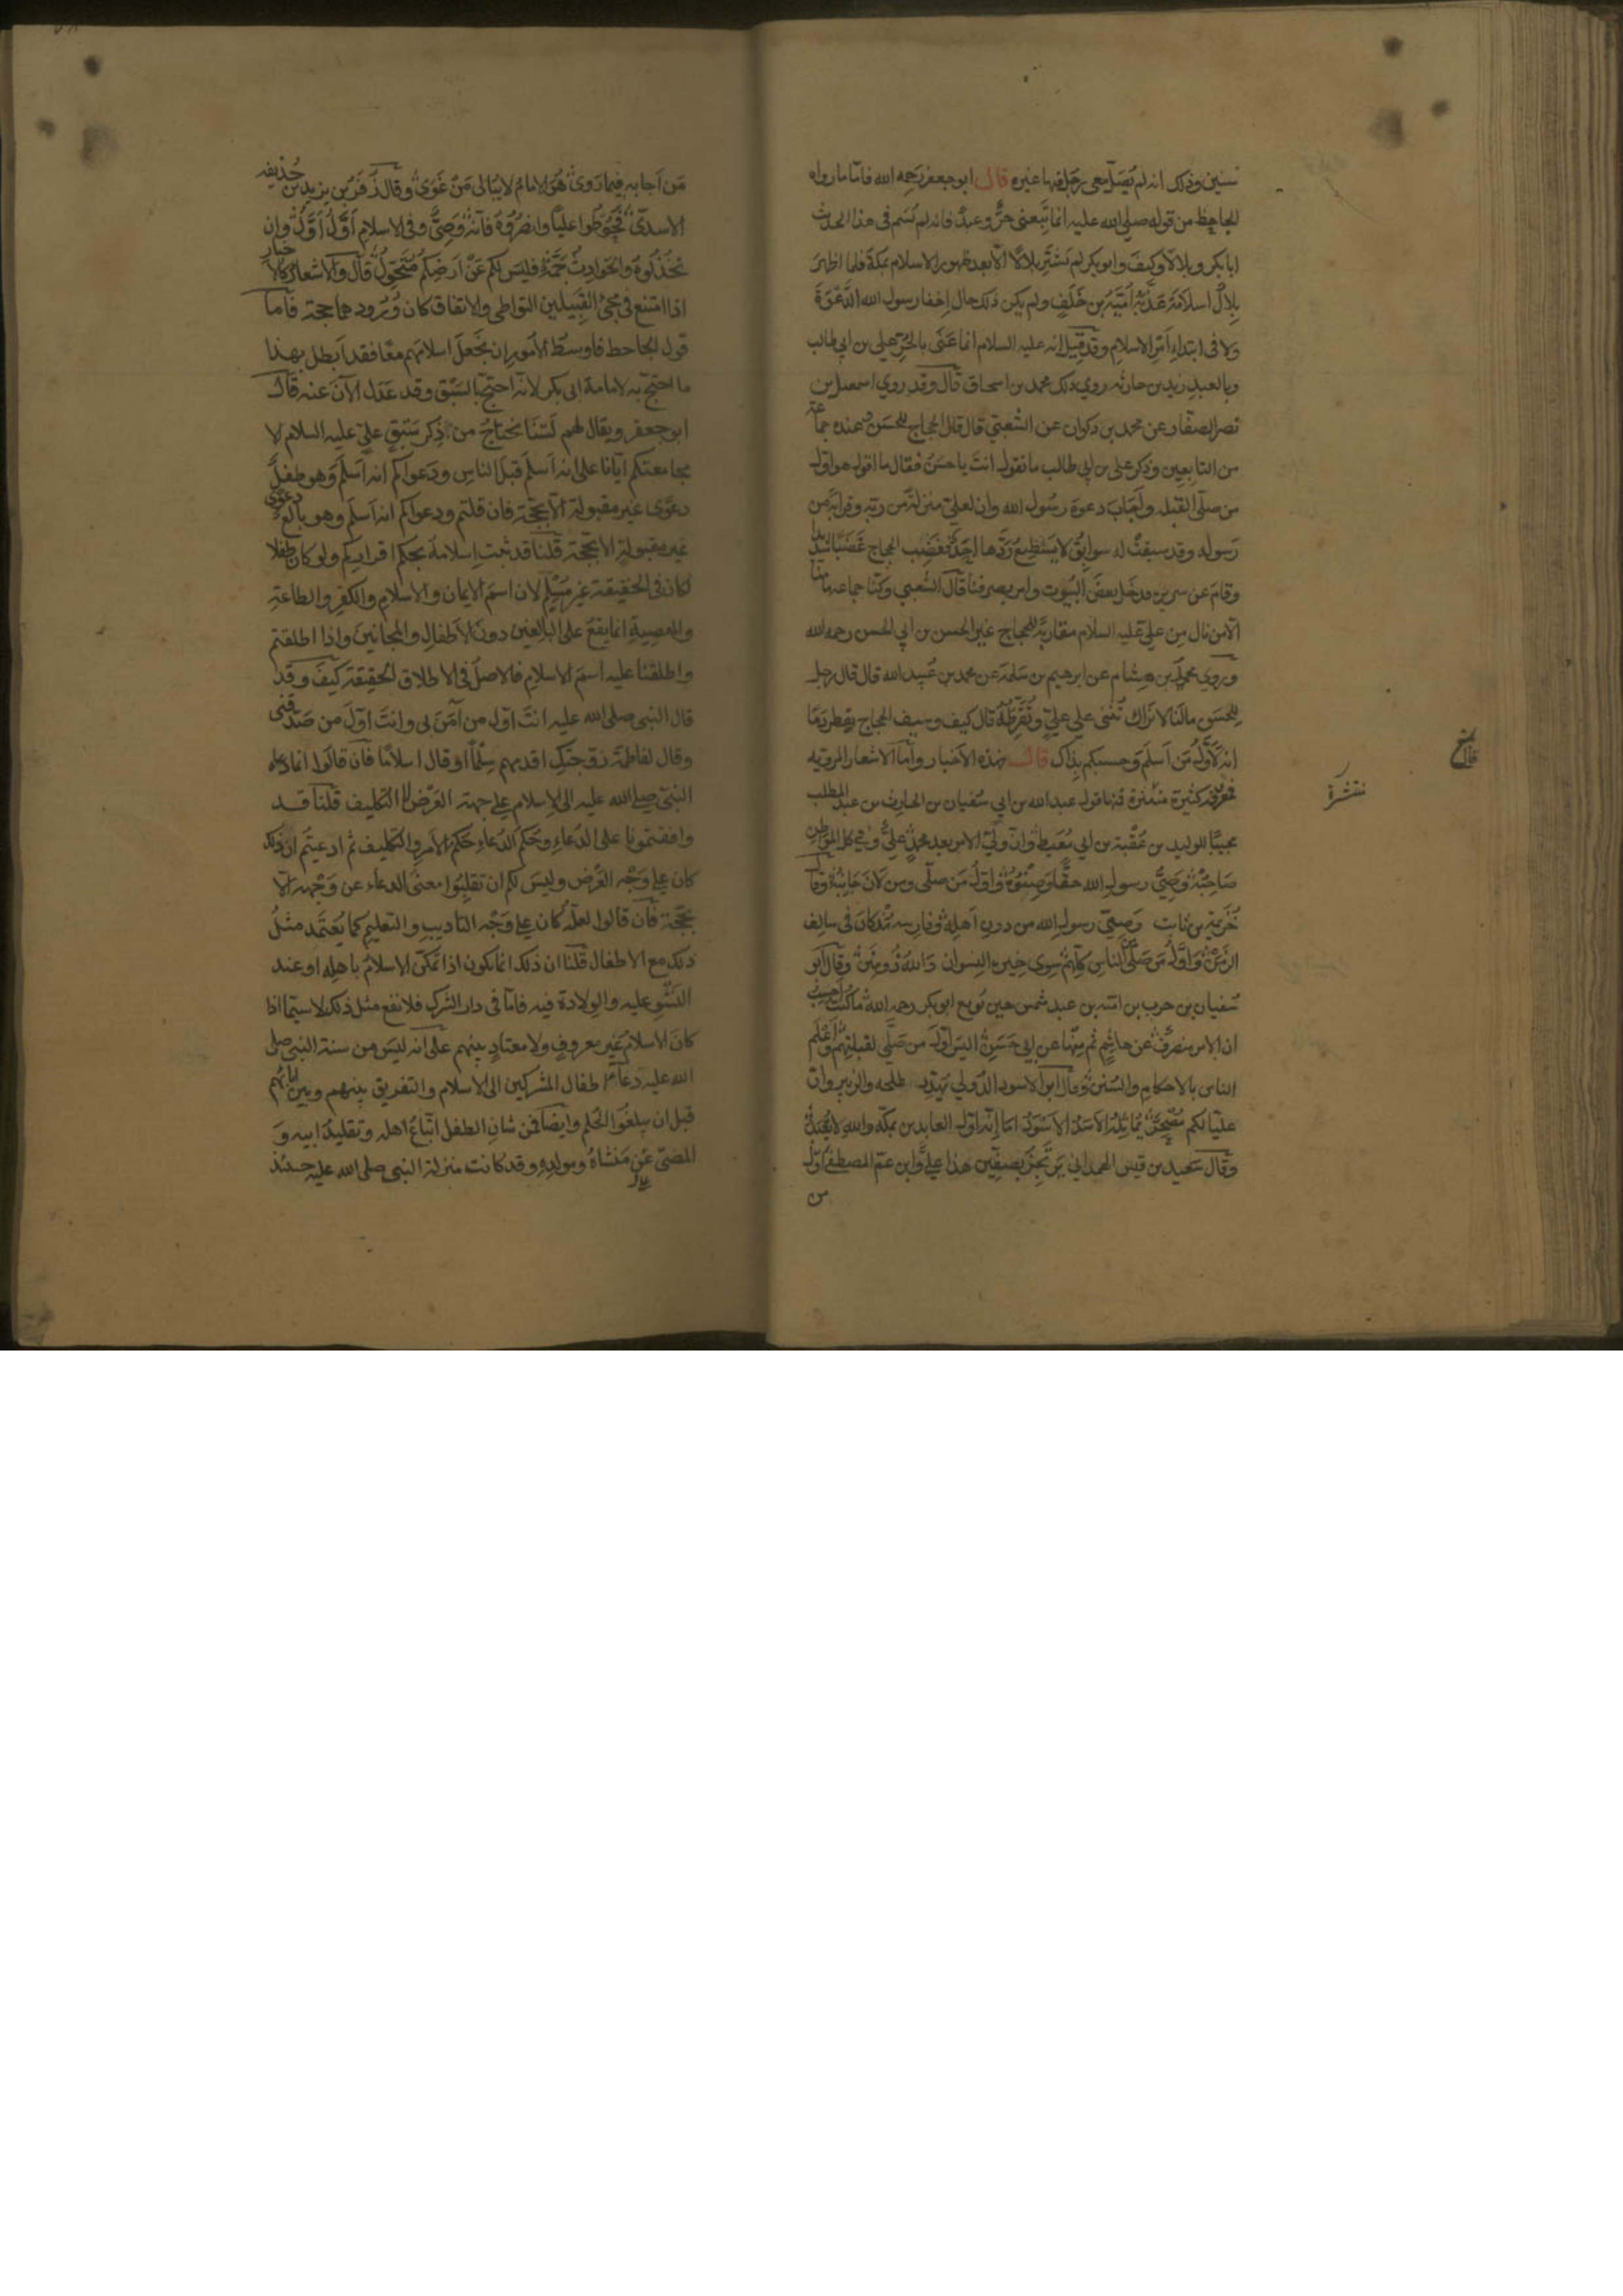 سنين وذلك انه لم يصل معى رجل فيها غيره قال ابو جعفر رحمه الله فاما ما رواه
الجاحظ من قوله صلى الله عليه انما تبعنى حر وعبد فانه لم يسم فى هذا الحديث
ابا بكر وبلالا وكيف وابو بكر لم يشتر بلالا الا بعد ظهور الاسلام بمكة فلما اظهر
بلال اسلامه عذبه امية بن خلف ولم يكن ذلك حال اخفا رسول الله الدعوة
ولا فى ابتداء امر الاسلام وقد قيل انه عليه السلام انما عنى بالحر على بن ابى طالب
وبالعبد زيد بن حارثه روى ذلك محمد بن اسحاق قال وقد روى اسمعيل بن
نصر الصفار عن محمد بن ذكوان عن الشعبي قال قال الحجاج للحسن وعنده جماعة
من التابعين وذكر على بن ابى طالب ما تقول انت يا حسن فقال ما اقول هو اول
من صلى القبلة واجاب دعوة رسول الله وان لعلي منزلة من ربه وقرابة من
رسوله وقد سبقت له سوابق لا يستطيع ردها احد فغضب الحجاج غضبا شديدا
وقام عن سريره فدخل بعض البيوت وامر بصرفنا قال الشعبي وكنا جماعة ما منا
الا من نال من علي عليه السلام مقاربة للحجاج غير الحسن بن ابي الحسن رحمه الله
وروى محمد بن هشام عن ابرهيم بن سلمة عن محمد بن عبيد الله قال قال رجل
للحسن مالنا لا نراك تثنى على علي وتقرظه قال كيف وسيف الحجاج يقطر دما
انه لاول من اسلم وحسبكم بذاك قال فهذه الاخبار واما الاشعار المروية
فمعروفة كثيرة منتشرة فمنها قول عبد الله بن ابي سفيان بن الحارث بن عبد المطلب
مجيبا للوليد بن عقبة بن ابي معيط وان ولي الامر بعد محمد علي وفي كل المواطن
صاحبه وصي رسول الله حقا وصنوه واول من صلى ومن لان جانبه وقال
خزيمة بن ثابت وصي رسول الله من دون اهله وفارسه مذ كان فى سالف
الزمن واول من صلى من الناس كلهم سوى خيرة النسوان والله ذو منن وقال ابو
سفيان بن حرب بن امية بن عبد شمس حين بويع ابو بكر رحمه الله ما كنت احسب
ان الامر منصرف عن هاشم ثم منها عن ابي حسن اليس اول من صلى لقبلتهم واعلم
الناس بالاحكام والسنن وقال ابو الاسود الدولي يهدد طلحة والزبير وان
عليا لكم مصحر يماثله الاسد الاسود اما انه اول العابدين بمكة والله لا يعبد
وقال سعيد بن قيس الهمداني يرتجز بصفين هذا علي وابن عم المصطفى اول
من
منتشرة
من اجابه فيما روى هو الامام لا يبالى من غوى وقال زفر بن يزيد بن حذيفه
الاسدى فحوطوا عليا وانصروه فانه وصي وفى الاسلام اول اول وان
تخذلوه والحوادث جمة فليس لكم عن ارضكم متحول قال والاشعار كالاخبار
اذا امتنع فى مجئ القبيلين التواطى والاتفاق كان ورودهما حجة فاما
قول الجاحط فاوسط الامور ان نجعل اسلامهم معا فقد ابطل بهذا
ما احتج به لامامة ابى بكر لانه احتج بالسبق وقد عدل الآن عنه قال
ابو جعفر ويقال لهم لسنا نحتاج من ذكر سبق علي عليه السلام لا
مجامعتكم ايانا على انه اسلم قبل الناس ودعواكم انه اسلم وهو طفل
دعوى غير مقبولة الا بحجة فان قلتم ودعواكم انه اسلم وهو بالغ دعوى
غير مقبولة الا بحجة قلنا قد ثبت اسلامه بحكم اقراركم ولو كان طفلا
لكان فى الحقيقة غير مسلم لان اسم الايمان والاسلام والكفر والطاعة
والمعصية انما يقع على البالغين دون الاطفال والمجانين واذا اطلقتم
واطلقنا عليه اسم الاسلام فالاصل فى الاطلاق الحقيقة كيف وقد
قال النبى صلى الله عليه انت اول من آمن بى وانت اول من صدقنى
وقال لفاطمة زوجتك اقدمهم سلما او قال اسلاما فان قالوا انما دعاه
النبى صلى الله عليه الى الاسلام على جهة العرض لا التكليف قلنا قد
وافقتمونا على الدعاء وحكم الدعاء حكم الامر والتكليف ثم ادعيتم ان ذلك
كان على وجه العرض وليس لكم ان تقلبوا معنى الدعاء عن وجهه الا
بحجة فان قالوا لعله كان على وجه التاديب والتعليم كما يعتمد مثل
ذلك مع الاطفال قلنا ان ذلك انما يكون اذا تمكن الاسلام باهله او عند
النشو عليه والولادة فيه فاما فى دار الشرك فلا نفع مثل ذلك لا سيما اذا
كان الاسلام غير معروف ولا معتاد بينهم على انه ليس من سنة النبى صلى
الله عليه دعاء اطفال المشركين الى الاسلام والتفريق بينهم وبين ابائهم
قبل ان يبلغوا الحلم وايضا فمن شان الطفل اتباع اهله وتقليد ابيه و
المضى على منشاه ومولده وقد كانت منزلة النبى صلى الله عليه حينئذ